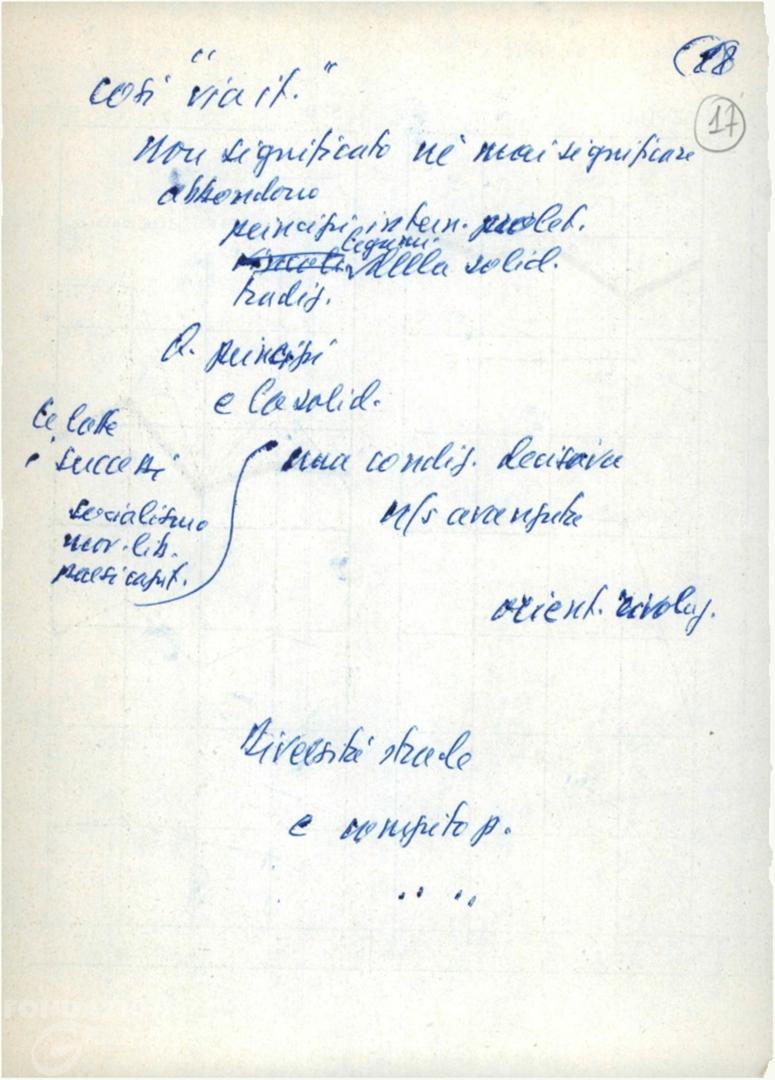 18
17
così "via it."
non significato né mai significare
abbandono
principi intern. prolet.
vincoli legami della solid.
tradiz.
Q. principi
e la solid.
le lotte
i successi
socialismo
mov. lib.
paesi capit.
una condiz. decisiva
n/s avanzata
orient. rivoluz.
Diversità strade
e compito p.